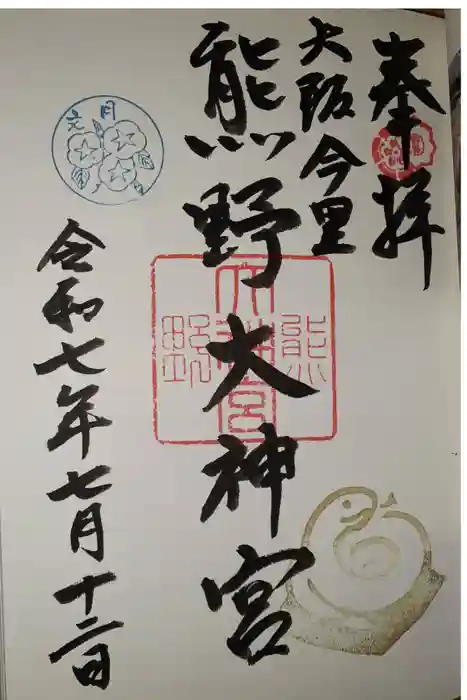 奉拝
大阪今里
熊野大神宮
熊野大神宮
文月
令和七年七月十二日